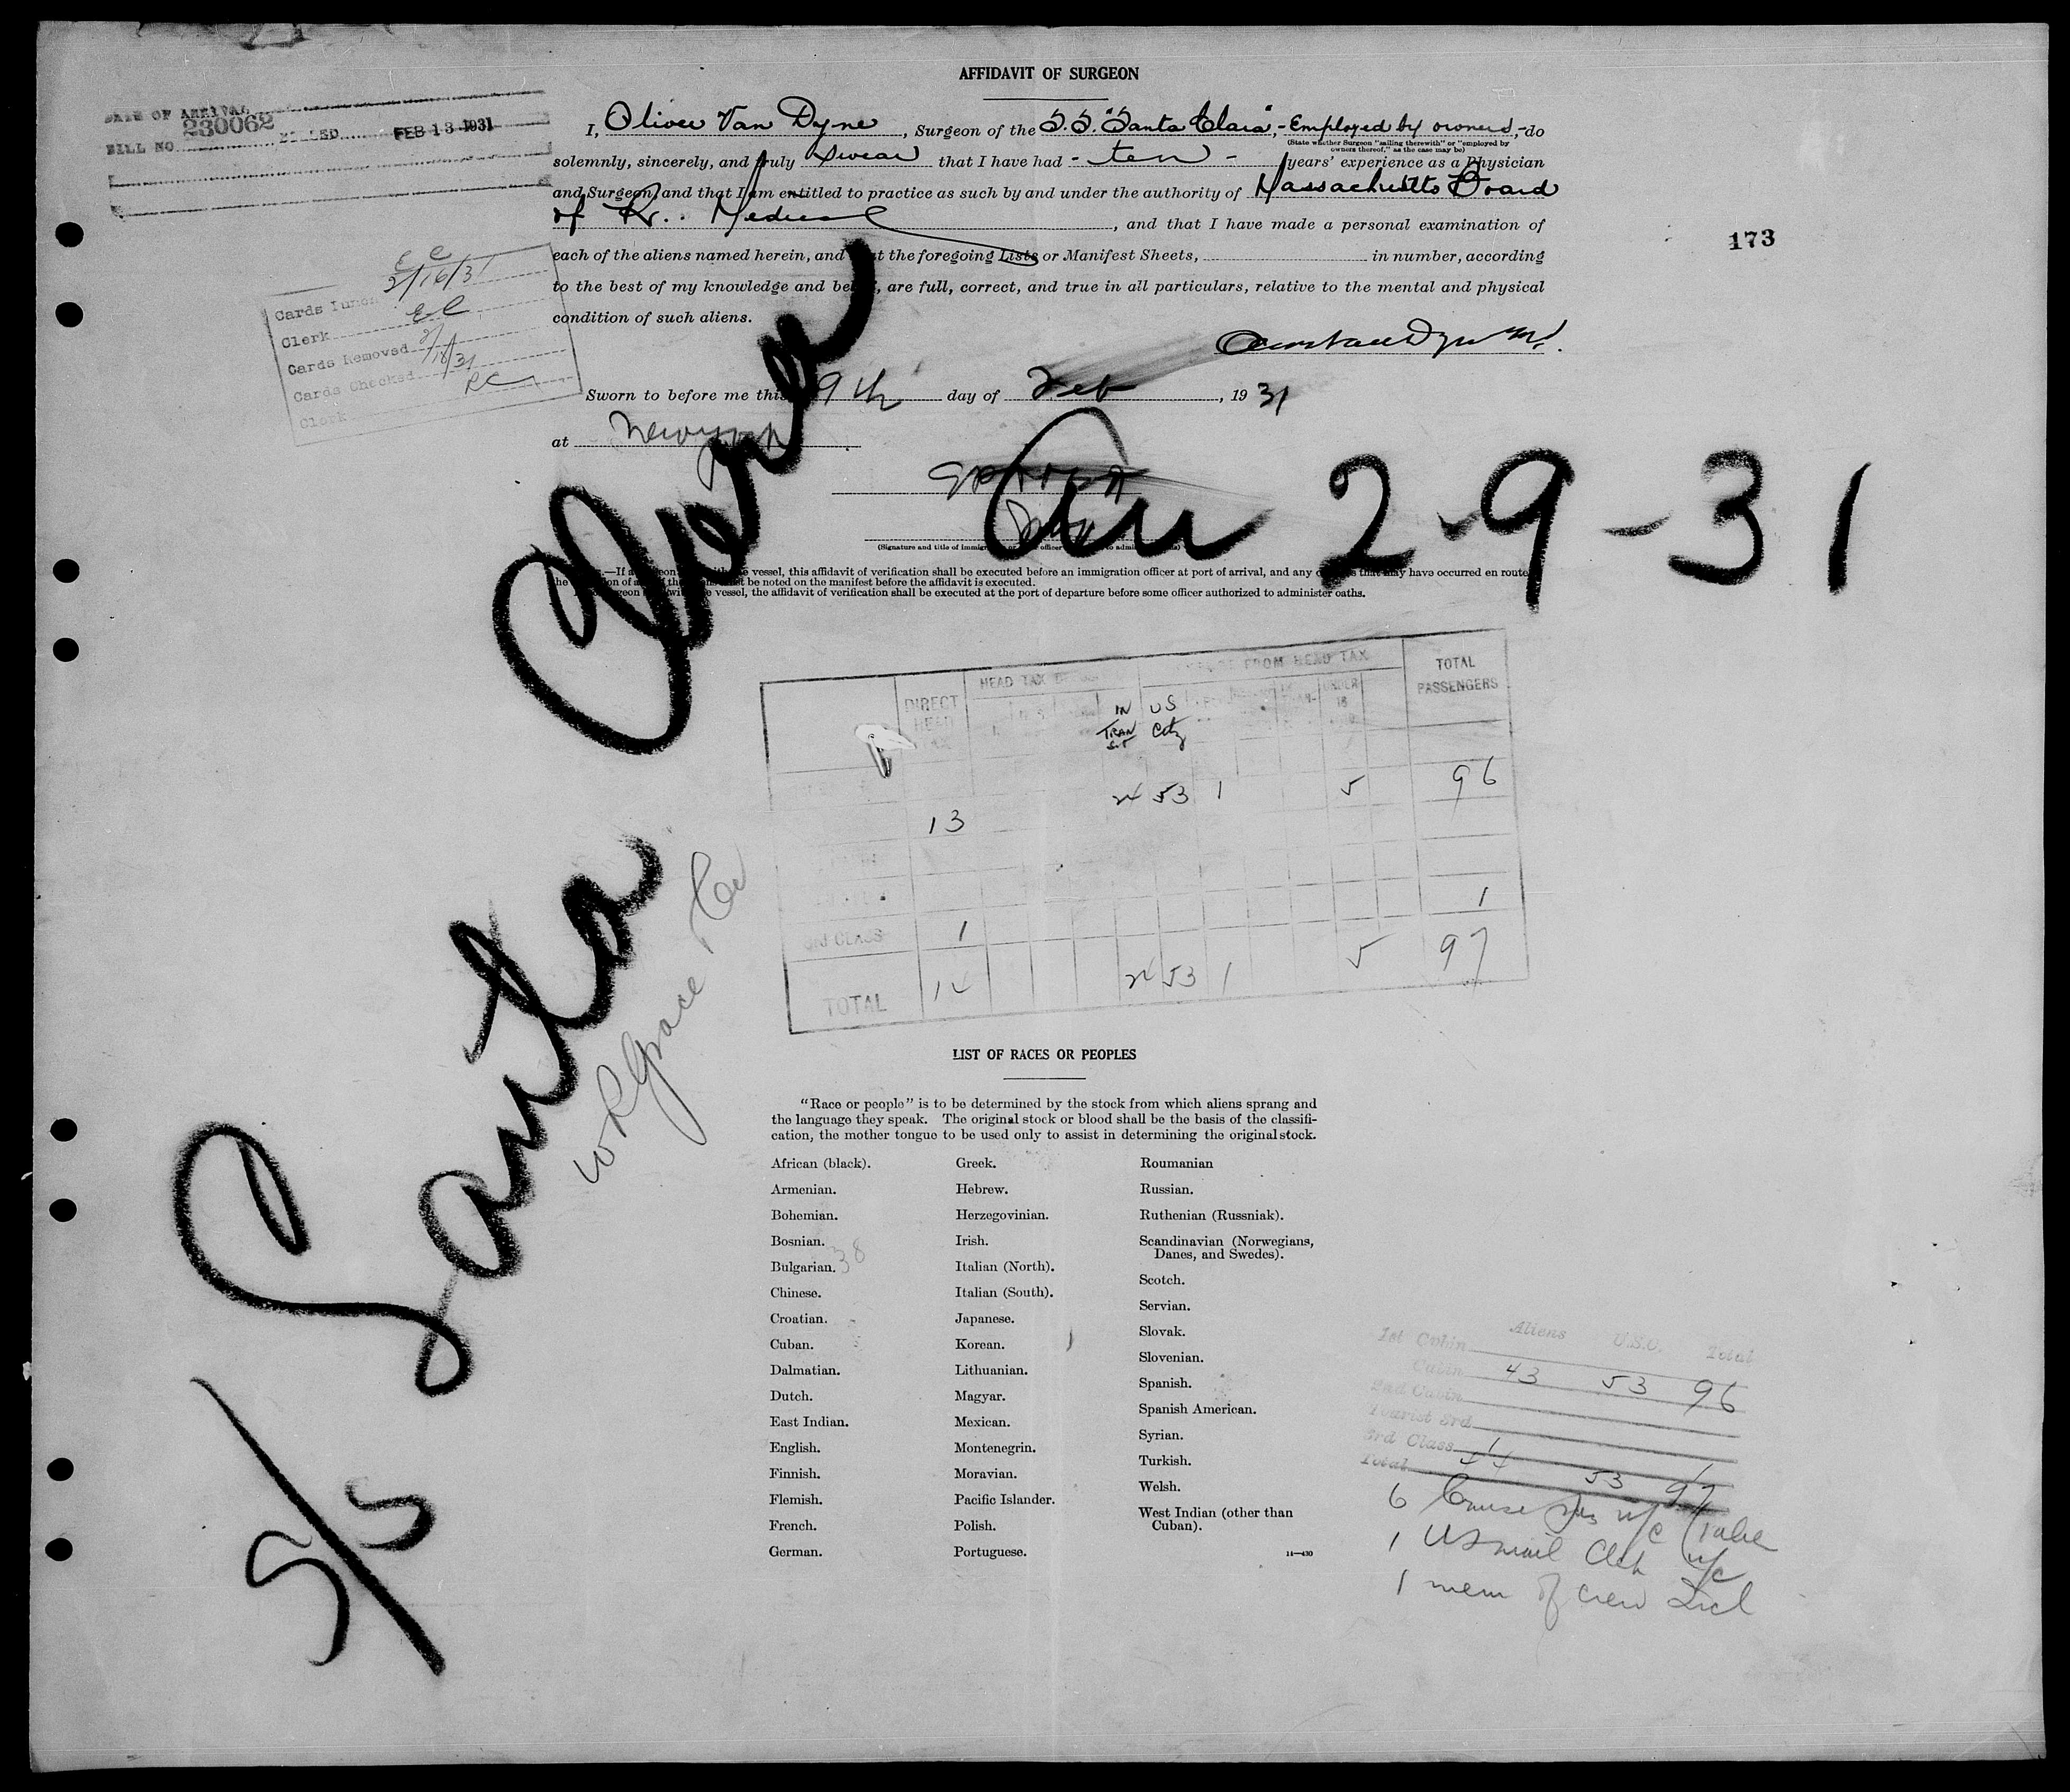 AFFIDAVIT OF SURGEON
DATE OF ARRIVAL
BILL NO 230062 BILLED FEB 13 1931
I, Oliver Van Dyne, Surgeon of the S.S. "Santa Clara", - Employed by owners, - do
(State whether Surgeon "sailing therewith" or "employed by
owners thereof," as the case may be)
solemnly, sincerely, and truly swear that I have had - ten - years' experience as a Physician
and Surgeon, and that I am entitled to practice as such by and under the authority of Massachusetts Board
of Medical, and that I have made a personal examination of
each of the aliens named herein, and that the foregoing Lists or Manifest Sheets, in number, according
to the best of my knowledge and belief, are full, correct, and true in all particulars, relative to the mental and physical
condition of such aliens.
173
2/16/31
Clerk EC
Cards Removed
Cards Checked 2/18/31
Clerk RC
Sworn to before me this 9th day of Feb, 1931
at New York
Arr 2-9-31
(Signature and title of immigration officer
—If a surgeon vessel, this affidavit of verification shall be executed before an immigration officer at port of arrival, and any may have occurred en route
be noted on the manifest before the affidavit is executed.
vessel, the affidavit of verification shall be executed at the port of departure before some officer authorized to administer oaths.
S/S Santa Clara
W R Grace Co
DIRECT HEAD
HEAD TAX
FROM HEAD TAX
UNDER 16
TOTAL PASSENGERS
IN TRANSIT
US City
24 53 1 5 96
13
1
3RD CLASS 1
TOTAL 24 53 1 5 97
LIST OF RACES OR PEOPLES
"Race or people" is to be determined by the stock from which aliens sprang and
the language they speak. The original stock or blood shall be the basis of the classifi-
cation, the mother tongue to be used only to assist in determining the original stock.
African (black).
Armenian.
Bohemian.
Bosnian.
Bulgarian. 38
Chinese.
Croatian.
Cuban.
Dalmatian.
Dutch.
East Indian.
English.
Finnish.
Flemish.
French.
German.
Greek.
Hebrew.
Herzegovinian.
Irish.
Italian (North).
Italian (South).
Japanese.
Korean.
Lithuanian.
Magyar.
Mexican.
Montenegrin.
Moravian.
Pacific Islander.
Polish.
Portuguese.
Roumanian
Russian.
Ruthenian (Russniak).
Scandinavian (Norwegians,
Danes, and Swedes).
Scotch.
Servian.
Slovak.
Slovenian.
Spanish.
Spanish American.
Syrian.
Turkish.
Welsh.
West Indian (other than
Cuban).
14—430
Aliens U.S.C. Total
1st Cabin
Cabin 43 53 96
2nd Cabin
Tourist 3rd
3rd Class 1 1
Total 44 53 97
6 Cruise
1 US mail Clerk
1 mem of crew Incl